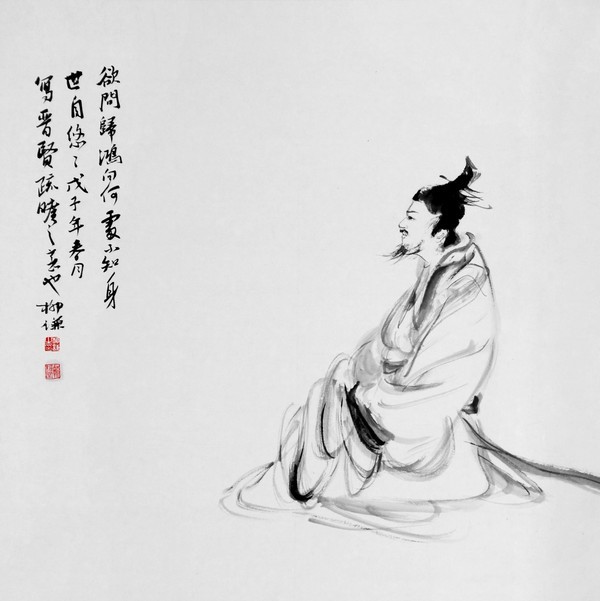 欲問歸鴻向何處不知身
世自悠〻戊子年春月
寫晉賢疏曠之意也